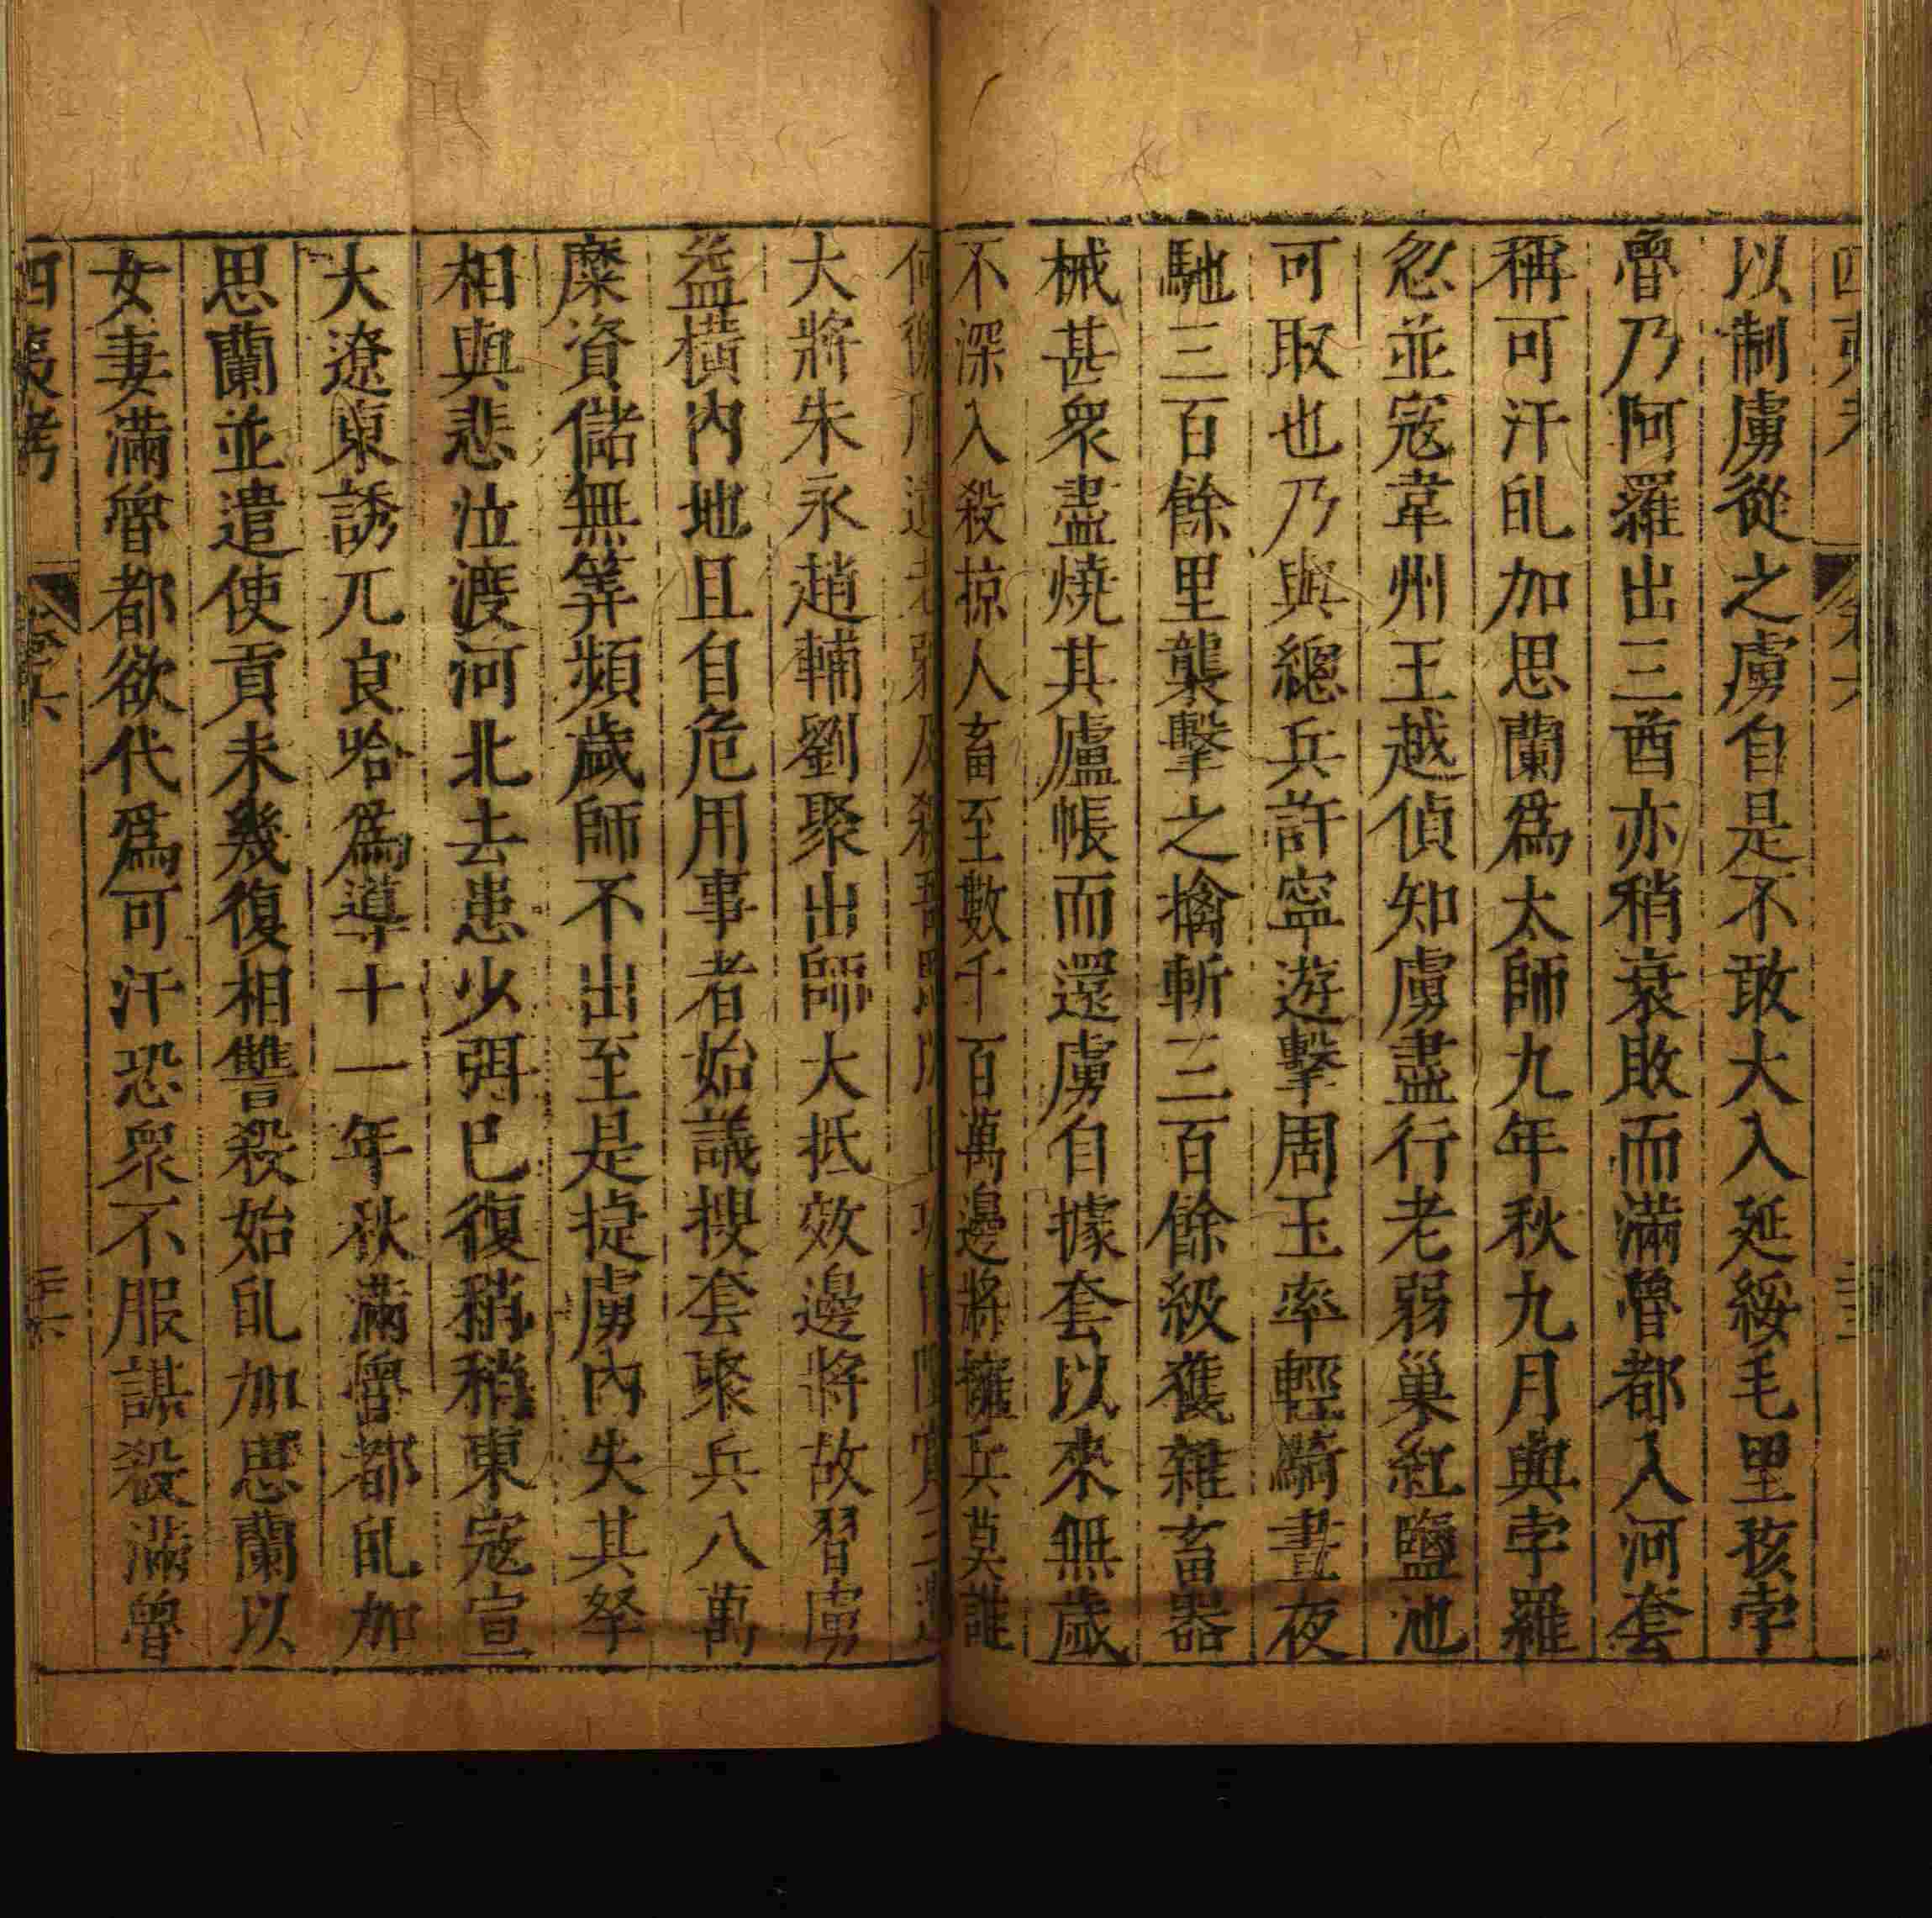 以制虜從之虜自是不敢大入延綏毛里孩孛
魯乃阿羅出三酋亦稍衰敗而滿魯都入河套
稱可汗癿加思蘭爲太師九年秋九月與孛羅
忽並寇韋州王越偵知虜盡行老弱巢紅鹽池
可取也乃與總兵許寧遊擊周玉率輕騎晝夜
馳三百餘里襲擊之擒斬三百餘級獲雜畜器
械甚衆盡燒其廬帳而還虜自據套以來無歲
不深入殺掠人畜至數千百萬邊將擁兵莫誰
何
大將朱永趙輔劉聚出師大抵效邊將故習虜
益橫內地且自危用事者始議搜套聚兵八萬
糜資儲無筭頻歲師不出至是捷虜內失其孥
相與悲泣渡河北去患少弭巳復稍稍東寇宣
大遼東誘兀良哈爲導十一年秋滿魯都癿加
思蘭並遣使貢未幾復相讐殺始癿加思蘭以
女妻滿魯都欲代爲可汗恐衆不服謀殺滿魯
四夷考 卷六